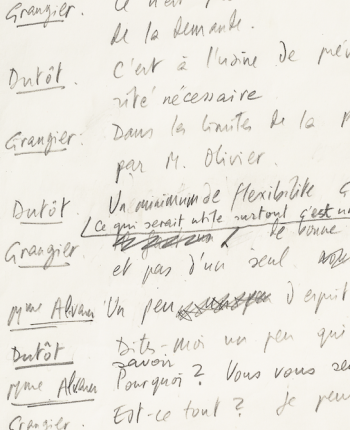 Grangier.
de la demande.
Dutôt. C'est à l'usine de
sité nécessaire
Grangier: Dans les limites de la
par M. Olivier.
Dutôt. Un minimum de flexibilité
Ce qui serait utile surtout c'est
Grangier de bonne
et pas d'un seul.
Mme Alvarez Un peu d'esprit
Dutôt Dites-moi un peu qui
savoir
Mme Alvarez Pourquoi? Vous vous
Grangier. Est-ce tout? Je